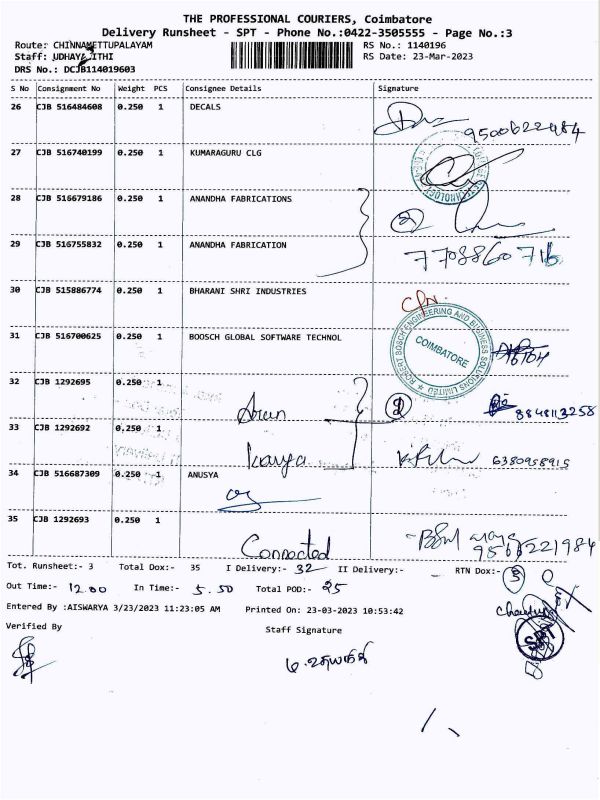 THE PROFESSIONAL COURIERS, Coimbatore
Delivery Runsheet - SPT - Phone No.:0422-3505555 - Page No.:3
Route: CHINNAMETTUPALAYAM RS No.: 1140196
Staff: UDHAYANITHI RS Date: 23-Mar-2023
DRS No.: DCJB114019603
S No Consignment No Weight PCS Consignee Details Signature
26 CJB 516484608 0.250 1 DECALS
9500622484
27 CJB 516740199 0.250 1 KUMARAGURU CLG
28 CJB 516679186 0.250 1 ANANDHA FABRICATIONS
2
29 CJB 516755832 0.250 1 ANANDHA FABRICATION
7708860716
30 CJB 515886774 0.250 1 BHARANI SHRI INDUSTRIES
31 CJB 516700625 0.250 1 BOOSCH GLOBAL SOFTWARE TECHNOL
ROBERT BOSCH ENGINEERING AND BUSINESS SOLUTIONS LIMITED
COIMBATORE
32 CJB 1292695 0.250 1
Arun 2 8848113258
33 CJB 1292692 0.250 1
Kavya 6380958915
34 CJB 516687309 0.250 1 ANUSYA
35 CJB 1292693 0.250 1
Connected
Tot. Runsheet:- 3 Total Dox:- 35 I Delivery:- 32 II Delivery:- RTN Dox:- 3
Out Time:- 12.00 In Time:- 5.50 Total POD:- 25
Entered By :AISWARYA 3/23/2023 11:23:05 AM Printed On: 23-03-2023 10:53:42
Verified By Staff Signature
SPT